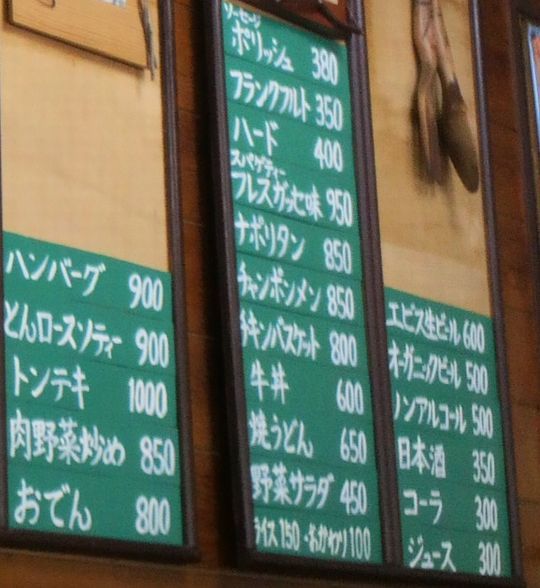 ハンバーグ 900
とんロースソティー 900
トンテキ 1000
肉野菜炒め 850
おでん 800
ソーセージ
ポリッシュ 380
フランクフルト 350
ハード 400
スパゲティー
フレスガッセ味 950
ナポリタン 850
チャンポンメン 850
チキンバスケット 800
牛丼 600
焼うどん 650
野菜サラダ 450
ライス150・おかわり100
エビス生ビール 600
オーガニックビール 500
ノンアルコール 500
日本酒 350
コーラ 300
ジュース 300